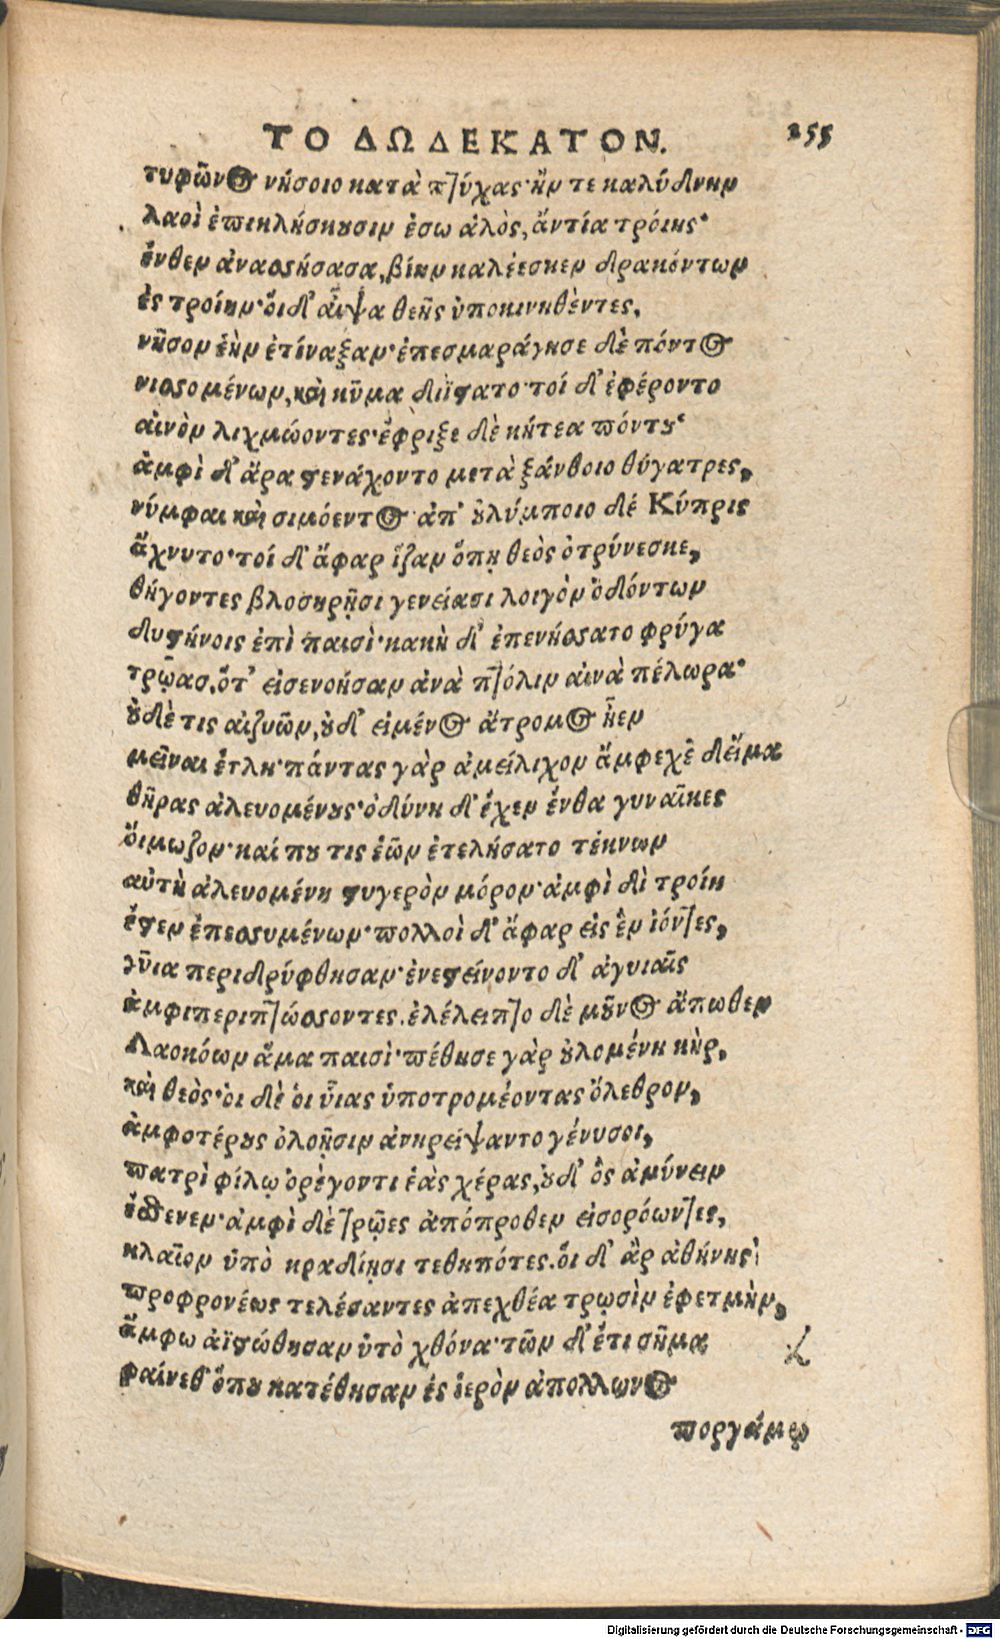 ΤΟ ΔΩΔΕΚΑΤΟΝ. 255
τυφῶνος νήσοιο κατὰ πτύχας· ἥν τε καλύδνην
λαοὶ ἐπικλήσκουσιν ἔσω ἁλὸς, ἄντία τρόιης·
ἔνθεν ἀναστήσασα, βίην καλέεσκεν δρακόντων
ἐς τροίην· ὅιδ' αἶψα θεῆς ὑποκινηθέντες,
νῆσον ἑὴν ἐτίναξαν· ἐπεσμαράγησε δὲ πόντος
νισσομένων, καὶ κῦμα διΐστατο· τοί δ' ἐφέροντο
αἰνὸν λιχμώοντες· ἔφριξε δὲ κήτεα πόντου·
ἀμφὶ δ' ἄρα στενάχοντο μετὰ ξάνθοιο θύγατρες,
νύμφαι καὶ σιμόεντος· ἀπ' οὐλύμποιο δέ Κύπρις
ἄχνυτο· τοί δ' ἄφαρ ἷζαν ὅπῃ θεὸς ὀτρύνεσκε,
θήγοντες βλοσυρῇσι γενείασι λοιγὸν ὀδόντων
δυστήνοις ἐπὶ παισὶ· κακὴ δ' ἐπενήσσατο φρύγα
τρῷας, ὅτ' εἰσενοήσαν ἀνὰ πτόλιν αἰνὰ πέλωρα·
οὐδὲ τις αἰζυῶν, οὐδ' εἰμένος ἄτρομος ἦεν
μεῖναι ἔτλη· πάντας γὰρ ἀμείλιχον ἄμφεχε δεῖμα
θῆρας ἀλευομένους· ὀδύνη δ' ἔχεν ἔνθα γυναῖκες
ὄιμωζον· καί που τις ἑῶν ἐτελήσατο τέκνων
αὐτὴ ἀλευομένη στυγερὸν μόρον· ἀμφὶ δὶ τροίη
ἔστεν ἐπεσσυμένων· πολλοὶ δ' ἄφαρ εἰς ἓν ἰόντες,
γῦια περιδρύφθησαν· ἐνεστείνοντο δ' ἀγυιαῖς
ἀμφιπεριπτώσσοντες. ἐλέλειπτο δὲ μοῦνος ἄπωθεν
Λαοκόων ἅμα παισὶ· πέθησε γὰρ οὐλομένη κὴρ,
καὶ θεὸς· ὁι δὲ ὁι ὗιας ὑποτρομέοντας ὄλεθρον,
ἀμφοτέρους ὀλοῇσιν ἀνηρείψαντο γένυσσι,
πατρὶ φίλῳ ὀρέγοντι ἑὰς χέρας, οὐδ' ὃς ἀμύνειν
ἔσθενεν· ἀμφὶ δὲ τρῷες ἀπόπροθεν εἰσορόωντες,
κλαῖον ὑπὸ κραδίῃσι τεθηπότες. ὅι δ' ἂρ ἀθήνης
προφρονέως τελέσαντες ἀπεχθέα τρωσὶν ἐφετμὴν,
ἄμφω ἀϊστώθησαν ὑτὸ χθόνα· τῶν δ' ἔτι σῆμα
φαίνεθ' ὅπου κατέθησαν ἐς ἱερὸν ἀπόλλωνος
ποργάμῳ
Digitalisierung gefördert durch die Deutsche Forschungsgemeinschaft - DFG